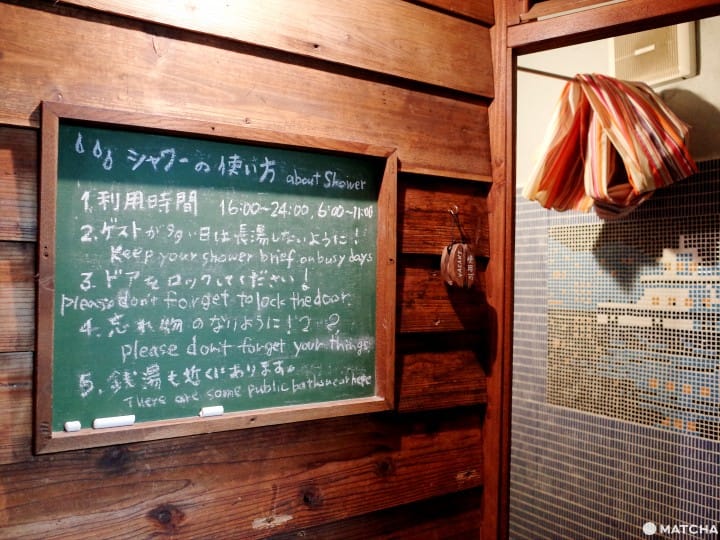 シャワーの使い方 about Shower
1.利用時間 16:00~24:00, 6:00~11:00
2.ゲストが多い日は長湯しないように!
Keep your shower brief on busy days
3.ドアをロックしてください!
please don't forget to lock the door.
4.忘れ物のないように!
please don't forget your things
5.銭湯も近くにあります。
There are some public baths near here
VACANT
使用可
MATCHA